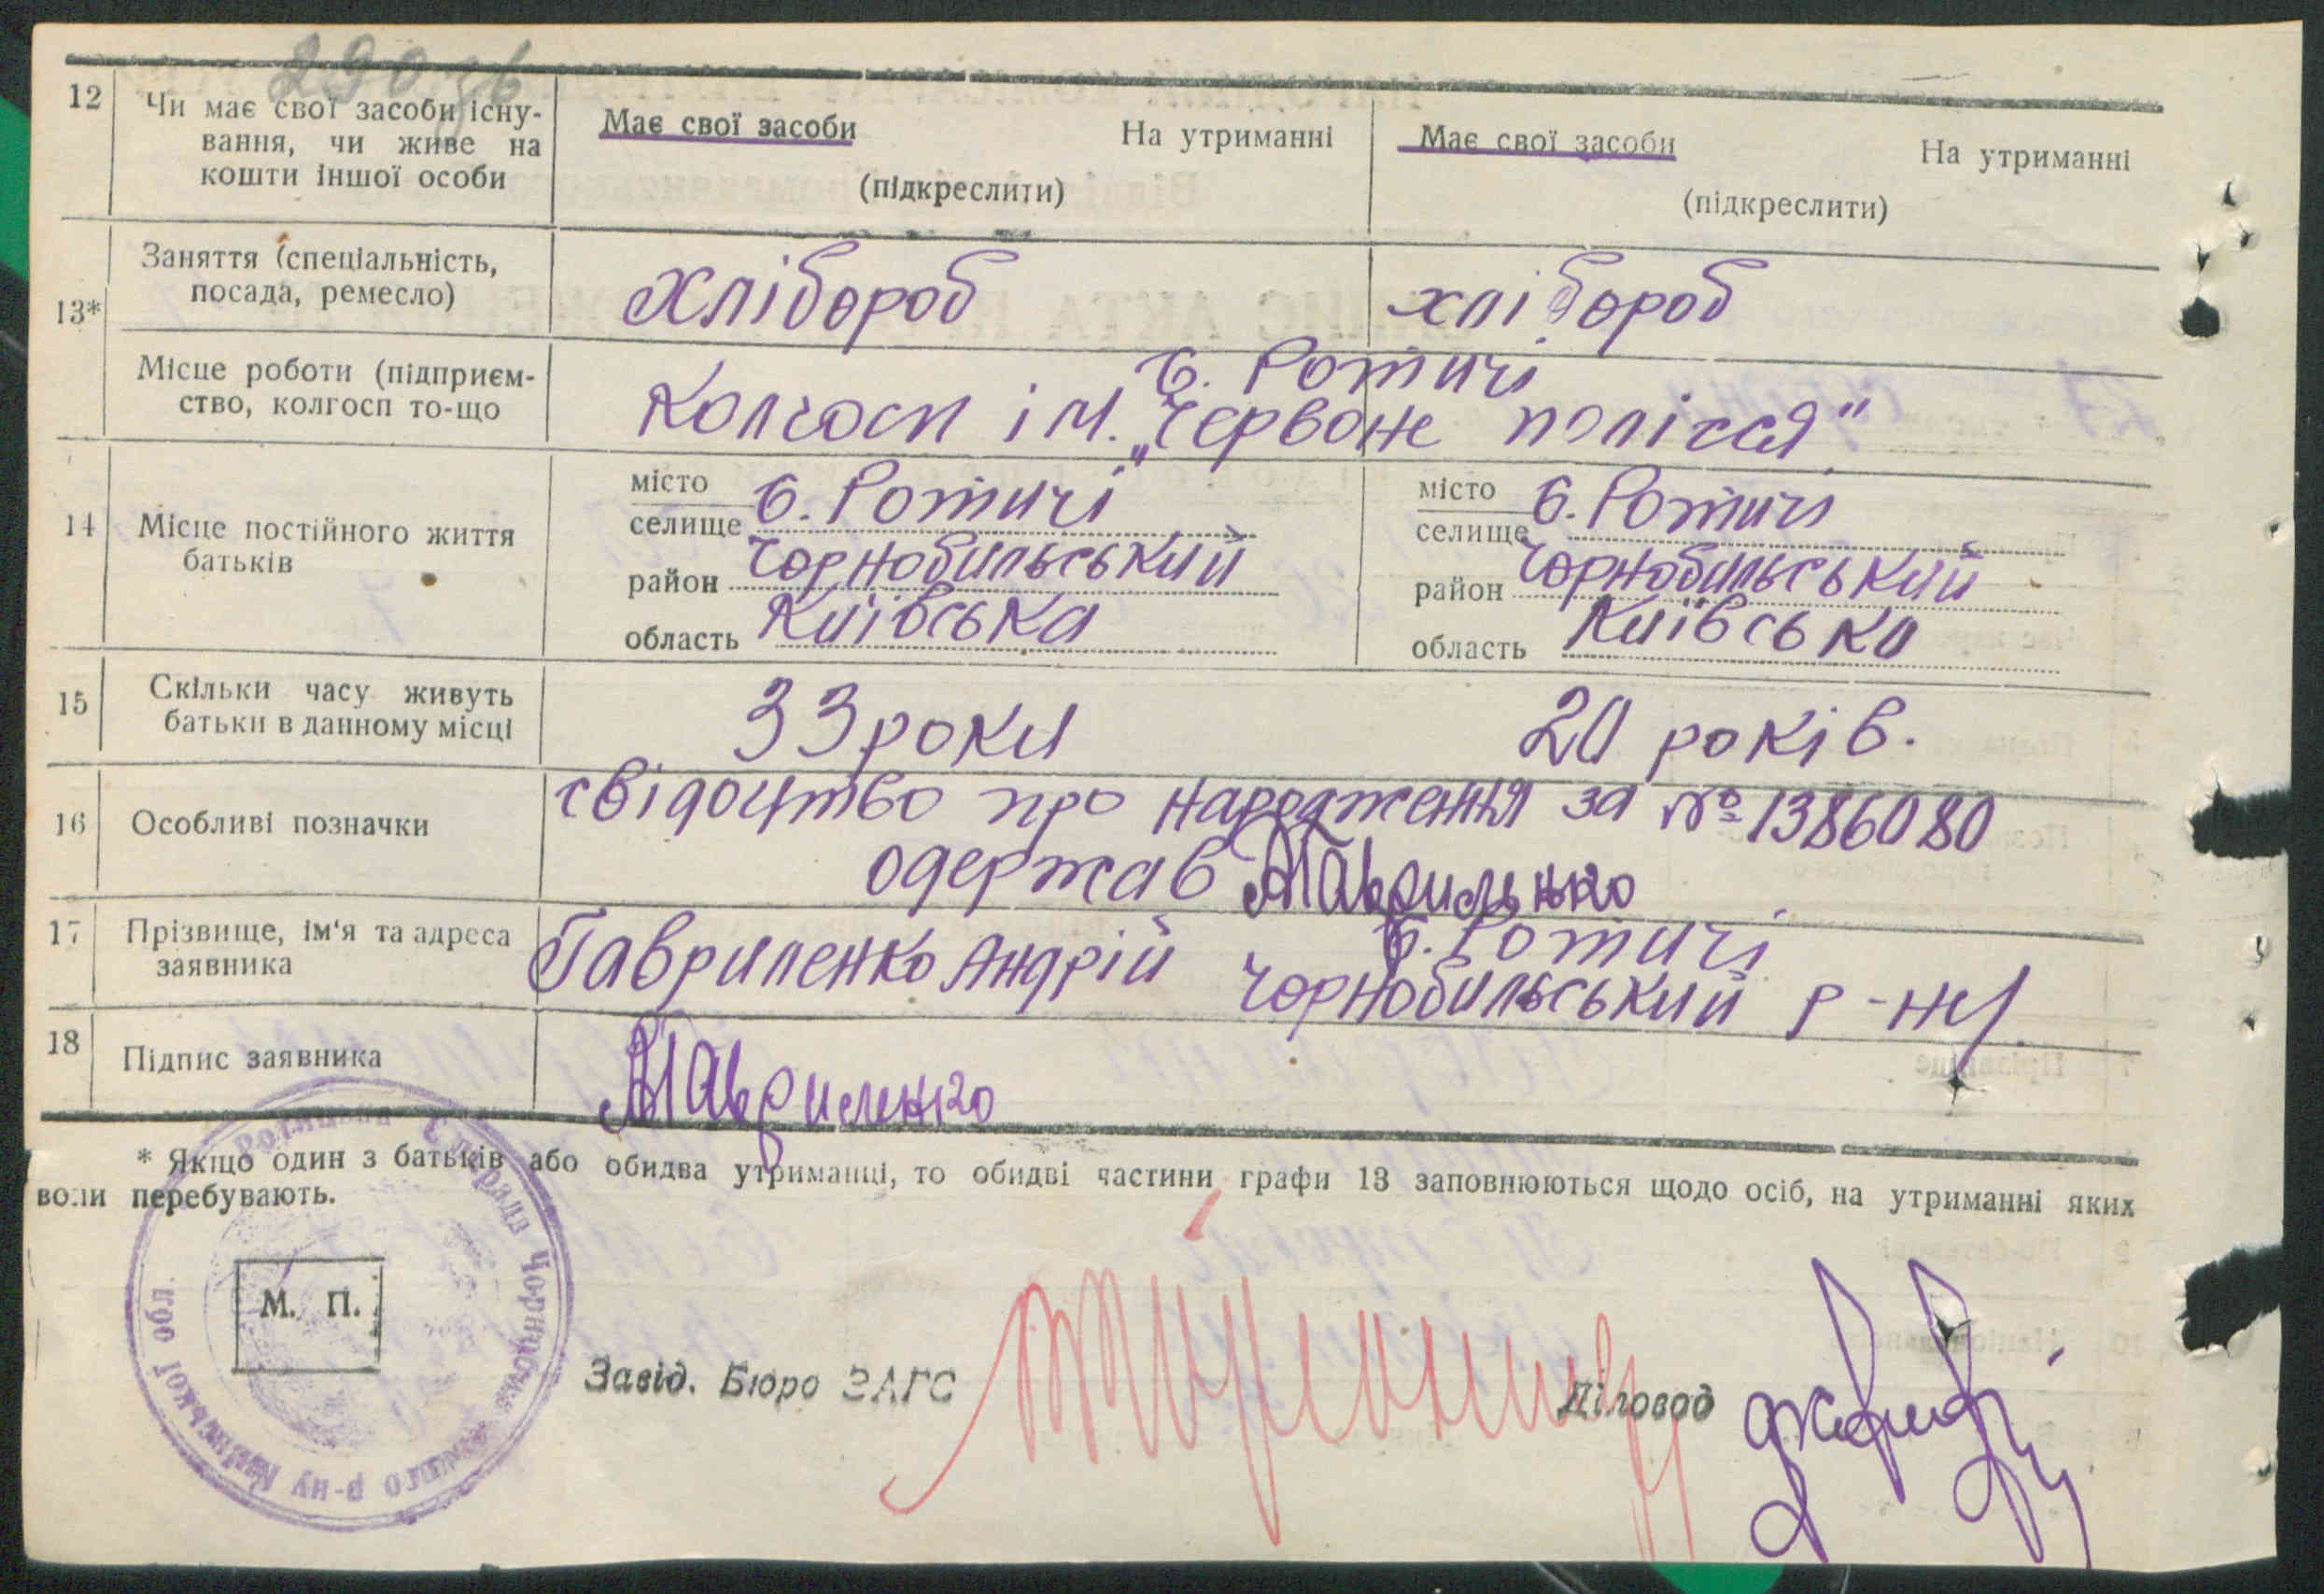 290 зв
12 Чи має свої засоби існу-
вання, чи живе на
кошти іншої особи
Має свої засоби На утриманні
(підкреслити)
Має свої засоби На утриманні
(підкреслити)
13*
Заняття (спеціальність,
посада, ремесло)
Хлібороб
хлібороб
Місце роботи (підприєм-
ство, колгосп то-що
с. Ротичі
Колгосп ім. „Червоне полісся"
14 Місце постійного життя
батьків
місто
селище с. Ротичі
район Чорнобильський
область Київська
місто
селище с. Ротичі
район Чорнобильський
область Київська
15 Скільки часу живуть
батьки в данному місці
33 роки
20 років.
16 Особливі позначки
свідоцтво про народження за № 1386080
одержав Гавриленко
17 Прізвище, ім'я та адреса
заявника
Гавриленко Андрій
с. Ротичі
Чорнобильський р-ну
18 Підпис заявника
Гавриленко
* Якщо один з батьків або обидва утриманці, то обидві частини графи 13 заповнюються щодо осіб, на утриманні яких
вони перебувають.
М. П.
Завід. Бюро ЗАГС
Діловод